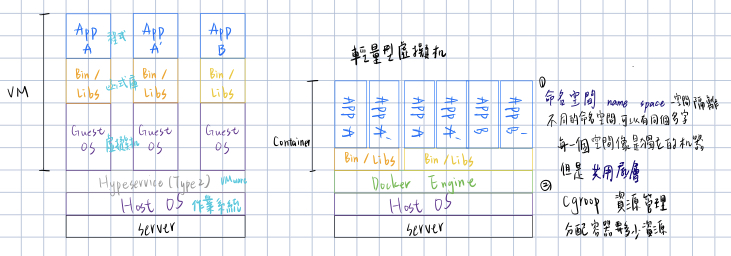 VM
App A 程式
App A'
App B
Bin / Libs 函式庫
Bin / Libs
Bin / Libs
Guest OS 虛擬机
Guest OS
Guest OS
Hypeservice (Type2) VMware
Host OS 作業系統
server
輕量型虛擬机
Container
APP A
APP A'
APP A'
APP A'
APP B
Bin / Libs
Bin / Libs
Docker Engine
Host OS
server
①
命名空間 name space - 空間隔離
不同的命名空間可以有同個名字
每一個空間像是獨立的机器
但是共用底層
②
Cgroop 資源管理
分配容器多少資源